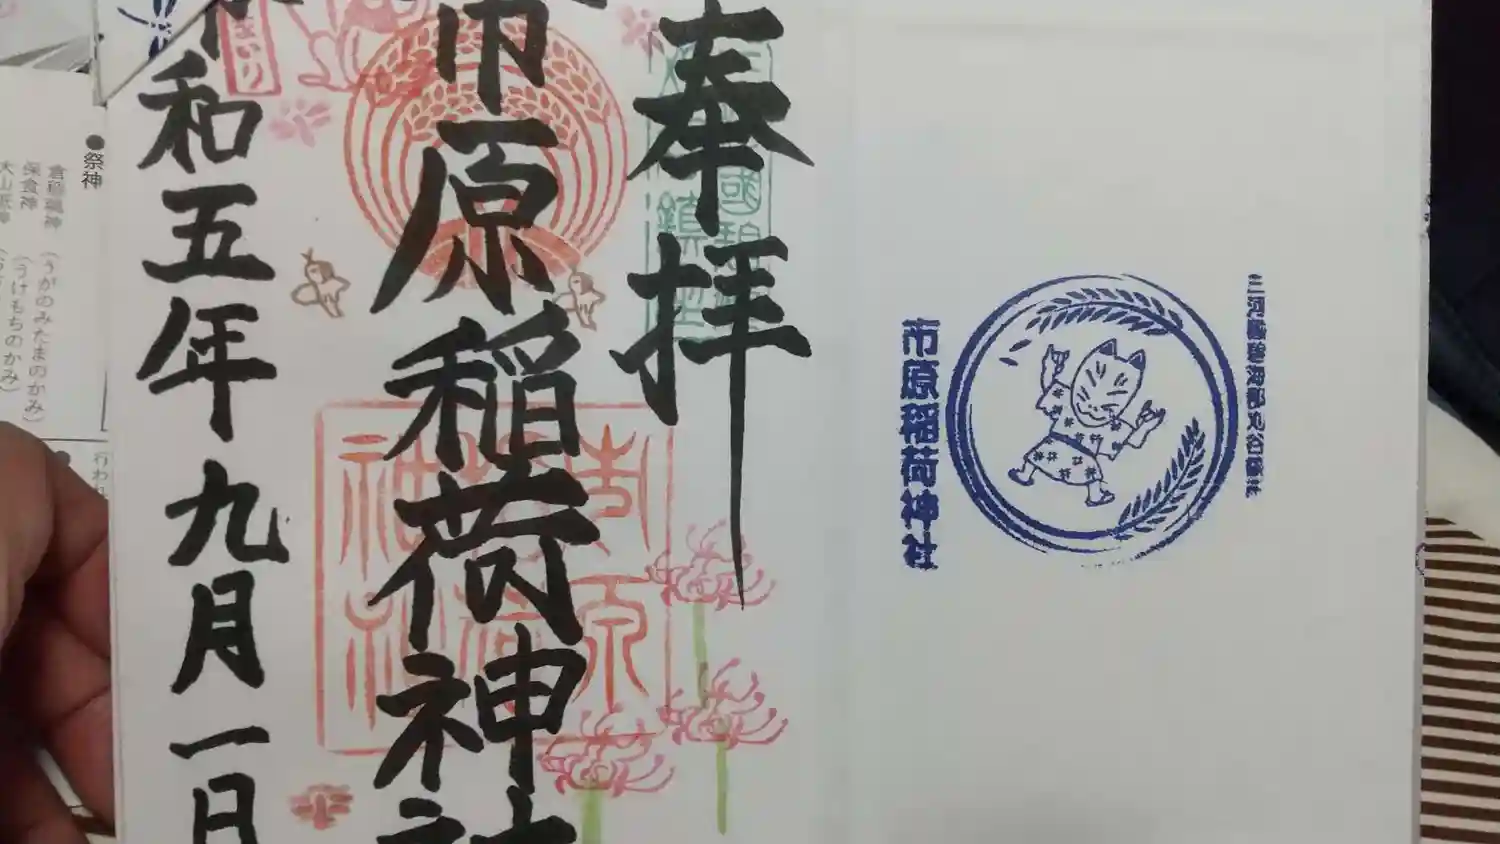 奉拝
市原稲荷神社
和五年九月一日
まいり
三河國碧海郡刈谷鎮社
市原稲荷神社
●祭神
倉稲魂神 (うがのみたまのかみ)
保食神 (うけもちのかみ)
大山祇神
行われ